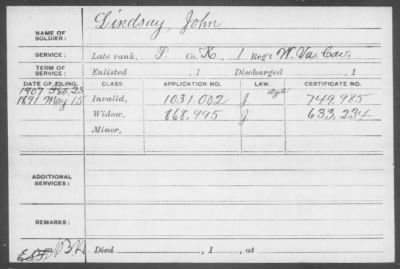 NAME OF SOLDIER: Lindsay, John
SERVICE: Late rank, P. Co. K, 1 Reg't W. Va. Cav.
TERM OF SERVICE: Enlisted , 1 Discharged , 1
DATE OF FILING. CLASS. APPLICATION NO. LAW. CERTIFICATE NO.
1907 Feb. 23 Invalid, 1031.002 J 749.985
1891 May 15 Widow, 868.995 J 633.234
Minor,
ADDITIONAL SERVICES:
REMARKS:
Died , 1 , at